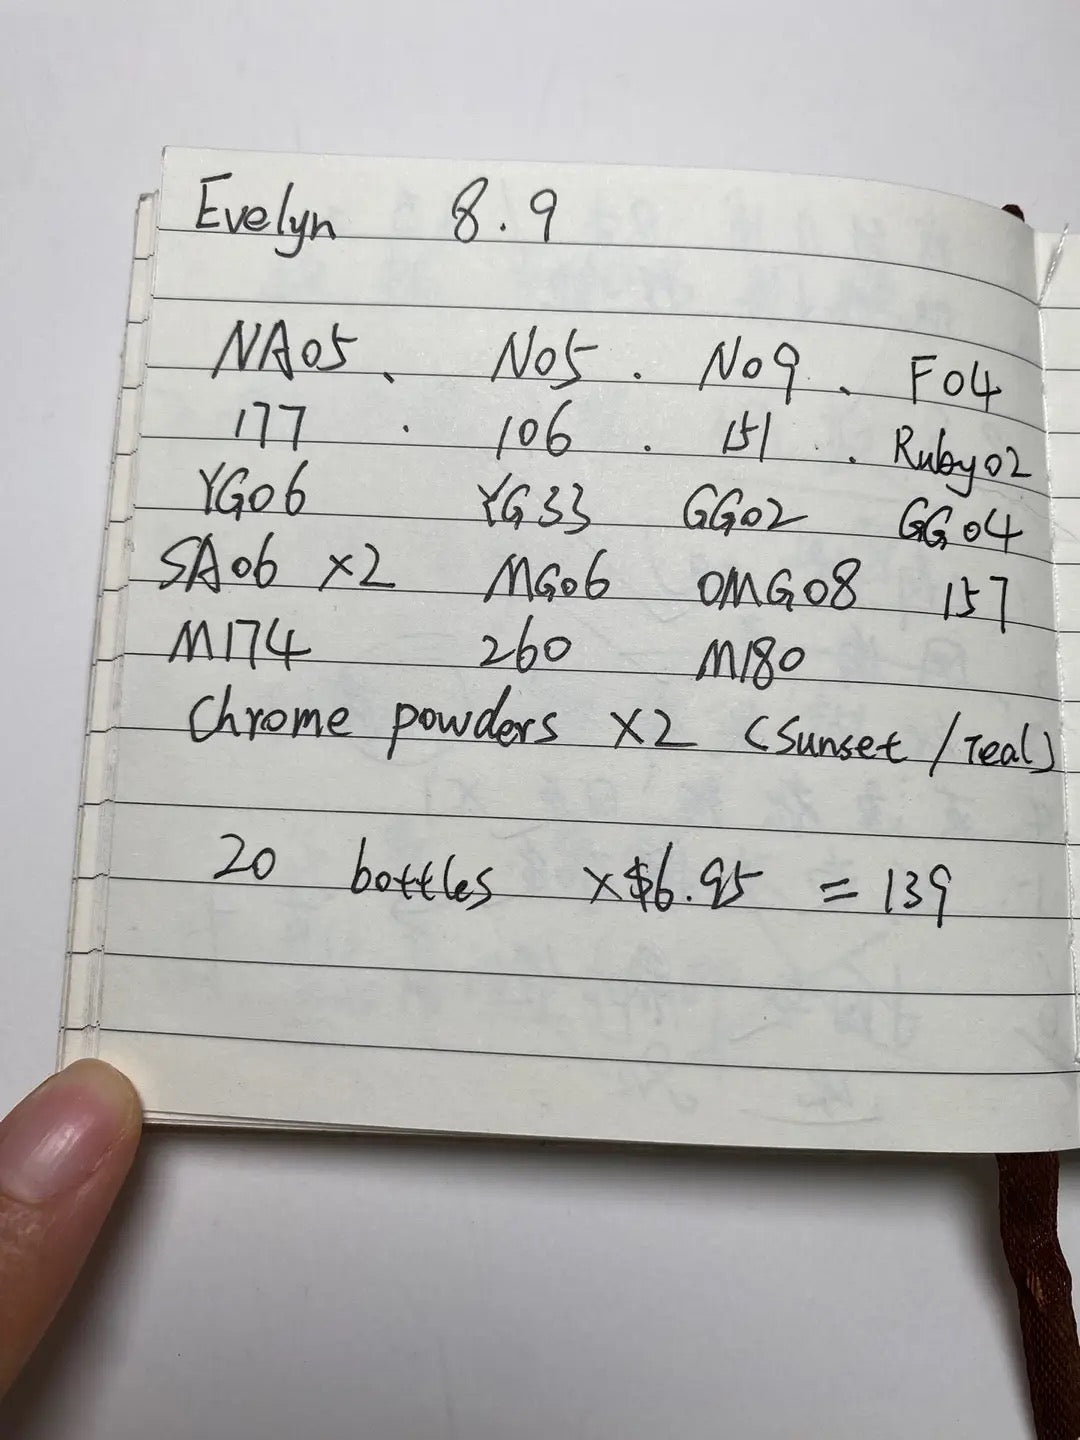 Evelyn 8.9
NA05 、 N05 . N09 . F04
177 . 106 . 151 . Ruby02
YG06 YG33 GG02 GG04
SA06 x2 MG06 OMG08 157
M174 260 M180
Chrome powders x2 (Sunset / Teal)
20 bottles x $6.95 = 139